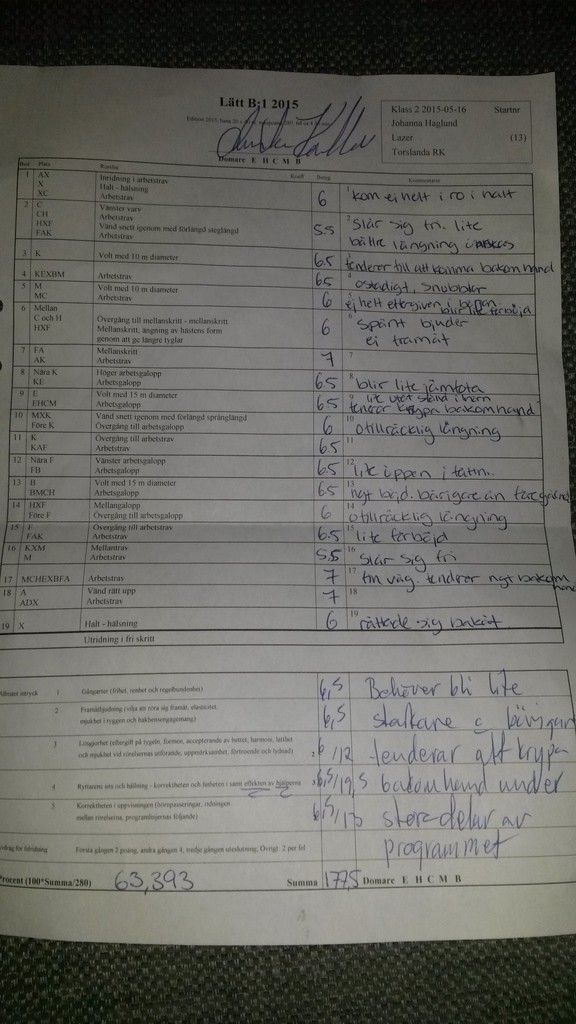 Lätt B:1 2015
Klass 2 2015-05-16 Startnr
Johanna Haglund
Lazer (13)
Torslanda RK
Domare E H C M B
Plats Rörelse Koeff Betyg Kommentarer
1 AX Inridning i arbetstrav
X Halt - hälsning
XC Arbetstrav 6 1 kom ej helt i ro i halt
2 C Vänster varv
CH Arbetstrav
HXF Vänd snett igenom med förlängd steglängd
FAK Arbetstrav 5.5 2 Slår sig fri. lite
bättre längning
3 K Volt med 10 m diameter 6.5 tenderer till att komma bakom hand
4 KEXBM Arbetstrav 6.5 ostadigt, snubblar
5 M Volt med 10 m diameter
MC Arbetstrav 6 ej helt eftergiven i början. blir lite förböjd
6 Mellan
C och H Övergång till mellanskritt - mellanskritt
HXF Mellanskritt, ängning av hästens form
genom att ge längre tyglar 6 6 spänt bjuder
ej framåt
7 FA Mellanskritt
AK Arbetstrav 7 7
8 Nära K Höger arbetsgalopp
KE Arbetsgalopp 6.5 8 blir lite
9 E Volt med 15 m diameter
EHCM Arbetsgalopp 6.5 9 lite utåt ställd i hörn
tenderar krypa bakom hand
10 MXK Vänd snett igenom med förlängd språnglängd
Före K Övergång till arbetsgalopp 6 10 otillräcklig längning
11 K Övergång till arbetstrav
KAF Arbetstrav 6.5 11
12 Nära F Vänster arbetsgalopp
FB Arbetsgalopp 6.5 12 lite öppen i fattn.
13 B Volt med 15 m diameter
BMCH Arbetsgalopp 6.5 13 ngt böjd. bärigare än föregående
14 HXF Mellangalopp
Före F Övergång till arbetsgalopp 6 14 otillräcklig längning
15 F Övergång till arbetstrav
FAK Arbetstrav 6.5 15 lite förböjd
16 KXM Mellantrav
M Arbetstrav 5,5 16 Slår sig fri
17 MCHEXBFA Arbetstrav 7 17 fin väg. tenderar ngt bakom hand
18 A Vänd rätt upp
ADX Arbetstrav 7 18
19 X Halt - hälsning 6 19 rättade sig bakåt
Utridning i fri skritt
Allmänt intryck 1 Gångarter (frihet, renhet och regelbundenhet) 6,5 Behöver bli lite
2 Framåtbjudning (vilja att röra sig framåt, elasticitet,
mjukhet i ryggen och bakbensengagemang) 6,5 starkare o bärigare
3 Lösgjordhet (eftergift på tygeln, formen, accepterande av bettet, harmoni, lätthet
och mjukhet vid rörelsernas utförande, uppmärksamhet, förtroende och lydnad) 6/12 tenderar att krypa
4 Ryttarens sits och hållning - korrektheten och finheten i samt effekten av hjälperna 6,5/19,5 bakom hand under
5 Korrektheten i uppvisningen (hörnpasseringar, ridningen
mellan rörelserna, programlinjernas följande) 6,5/13 stora delar av
programmet
Avdrag för felridning Första gången 2 poäng, andra gången 4, tredje gången uteslutning. Övrigt 2 per fel
Procent (100*Summa/280) 63,393 Summa 177,5 Domare E H C M B